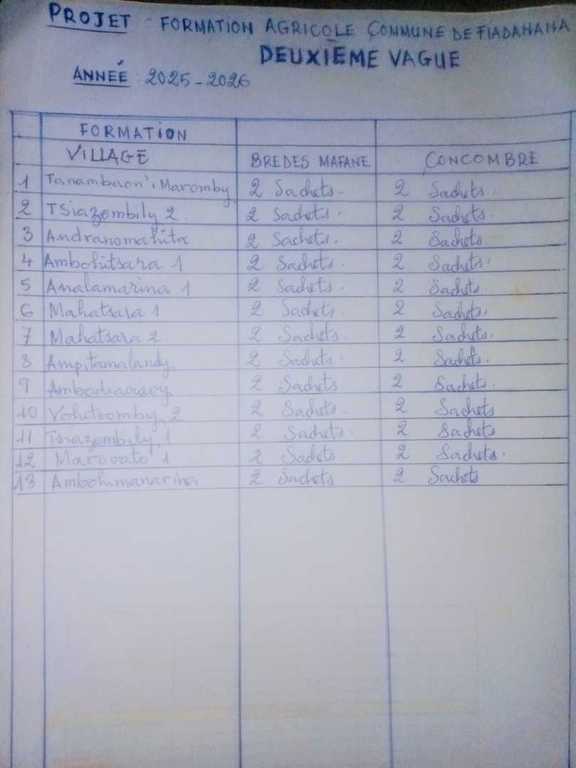 PROJET : FORMATION AGRICOLE COMMUNE DE FIADANANA
DEUXIÈME VAGUE
ANNÉE : 2025-2026
FORMATION
VILLAGE BREDES MAFANE CONCOMBRE
1 Tanambaon'i Maromby 2 Sachets. 2 Sachets.
2 TSiazombily 2 2 Sachets. 2 Sachets.
3 Andranomafita 2 Sachets. 2 Sachets
4 Ambohitsara 1 2 Sachets. 2 Sachets.
5 Analamarina 1 2 Sachets. 2 Sachets
6 Mahatsara 1 2 Sachets. 2 Sachets.
7 Mahatsara 2 2 Sachets. 2 Sachets.
8 Ampitamalandy 2 Sachets. 2 Sachets.
9 2 Sachets 2 Sachets.
10 Vohitromby 2 2 Sachets. 2 Sachets
11 Tsiazombily 1 2 Sachets. 2 Sachets
12 Marovato 1 2 Sachets 2 Sachets.
13 Ambohimanarina 2 Sachets 2 Sachets